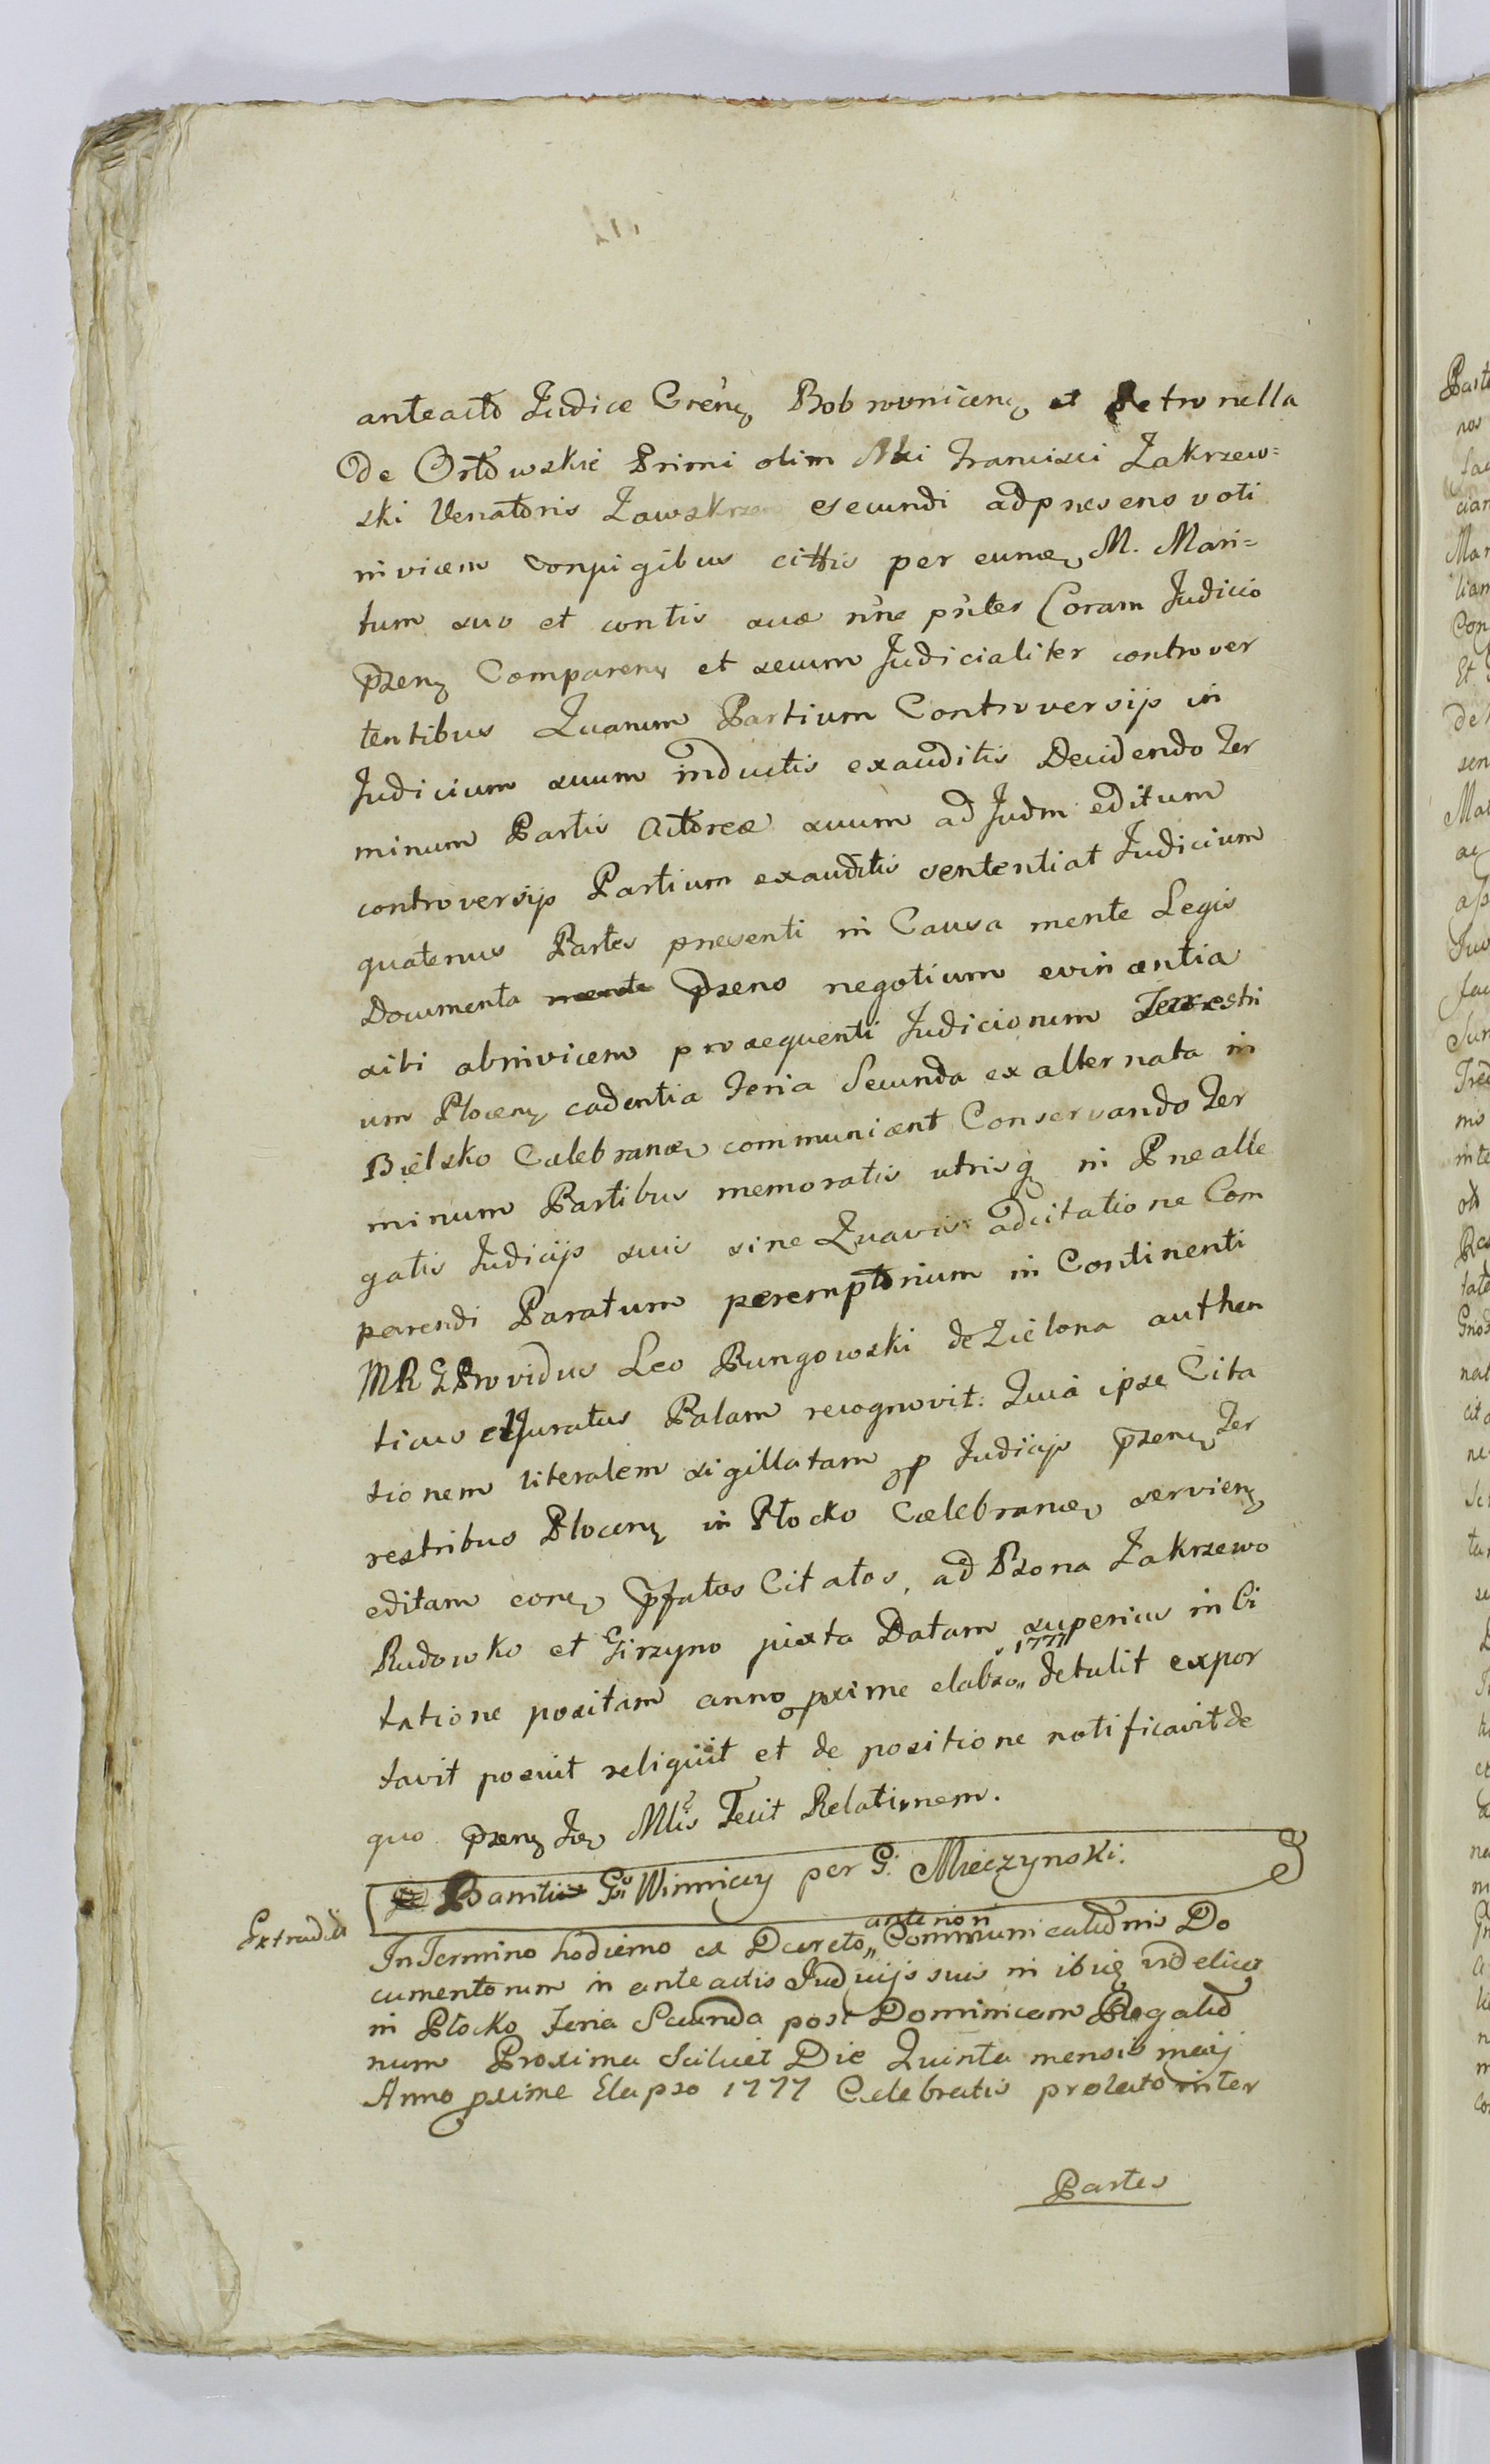 anteacto Judice Crenę Bobrownicenę et Petronella
de Orłowskie Primi olim Mci Francisci Zakrzew=
ski Venatoris Zawskrzen et secundi ad presens voti
invicem conjugibus cittis per eumę M. Mari=
tum suo et contis suæ nne pntes Coram Judicio
pzenę Comparenę et secum Judicialiter controver
tentibus Quarum Partium Controversijs in
Judicium suum inductis exauditis Decidendo Ter
minum Partis Actoreæ suum ad Judm editum
controversijs Partium exauditis sententiat Judicium
quatenus Partes presenti in Causa mente Legis
Documenta pzens negotium evincentia
sibi abinvicem prosequenti Judiciorum Terrestri
um Plocenę cadentia Feria Secunda ex alternata in
Bielsko Celebranæę communicent Conservando Ter
minum Partibus memoratis utrisq in Prealle
gatis Judicijs suis sine Quavis adcitatione Com
parendi Paratum peremptorium in Continenti
MR Providus Leo Rungowski de Zielona authen
ticus et Juratus Palam recognovit: Quia ipse Cita
tionem literalem sigillatam p Judicijs pzenę Ter
restribus Plocenę in Płocko Cælebranæę servienę
editam eorę pfatos Citatos, ad Bona Zakrzewo
Rudowko et Girzyno juxta Datam superius in Ci
tatione positam anno pxime elabso „1777 detulit expor
tavit posuit reliquit et de positione notificavit de
quo pzenę Mlis Fecit Relationem.
Banitio Gi Winnicy per G. Mieczynski.
Extradidi
In Termino hodierno ex Decreto „anteriori Communicationis Do
cumentorum in anteactis Judicijs suis in ibię videlicę
in Płocko Feria Secunda post Dominicam Rogatio
num Proxima Scilicet Die Quinta mensis maij
Anno pxime Elapso 1777 Celebratis prolato inter
Partes